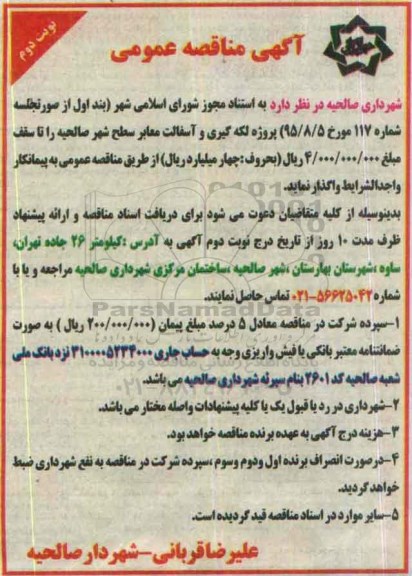 نوبت دوم
آگهی مناقصه عمومی
شهرداری صالحیه در نظر دارد به استناد مجوز شورای اسلامی شهر (بند اول از صورتجلسه
شماره ۱۱۷ مورخ ۹۵/۸/۵) پروژه لکه گیری و آسفالت معابر سطح شهر صالحیه را تا سقف
مبلغ ۴/۰۰۰/۰۰۰/۰۰۰ ریال (بحروف:چهار میلیارد ریال) از طریق مناقصه عمومی به پیمانکار
واجدالشرایط واگذار نماید.
بدینوسیله از کلیه متقاضیان دعوت می شود برای دریافت اسناد مناقصه و ارائه پیشنهاد
ظرف مدت ۱۰ روز از تاریخ درج نوبت دوم آگهی به آدرس :کیلومتر ۲۶ جاده تهران،
ساوه ،شهرستان بهارستان ،شهر صالحیه ،ساختمان مرکزی شهرداری صالحیه مراجعه و یا با
شماره ۵۶۶۲۵۰۴۲-۰۲۱ تماس حاصل نمایند.
ParsNamadData
۱-سپرده شرکت در مناقصه معادل ۵ درصد مبلغ پیمان (۲۰۰/۰۰۰/۰۰۰ ریال ) به صورت
ضمانتنامه معتبر بانکی یا فیش واریزی وجه به حساب جاری ۳۱۰۰۰۰۵۲۳۴۰۰۰ نزد بانک ملی
شعبه صالحیه کد ۲۶۰۱ بنام سپرده شهرداری صالحیه می باشد.
۲-شهرداری در رد یا قبول یک یا کلیه پیشنهادات واصله مختار می باشد.
۳-هزینه درج آگهی به عهده برنده مناقصه خواهد بود.
۴-در صورت انصراف برنده اول و دوم و سوم ،سپرده شرکت در مناقصه به نفع شهرداری ضبط
خواهد گردید.
۵-سایر موارد در اسناد مناقصه قید گردیده است.
علیرضا قربانی-شهردار صالحیه